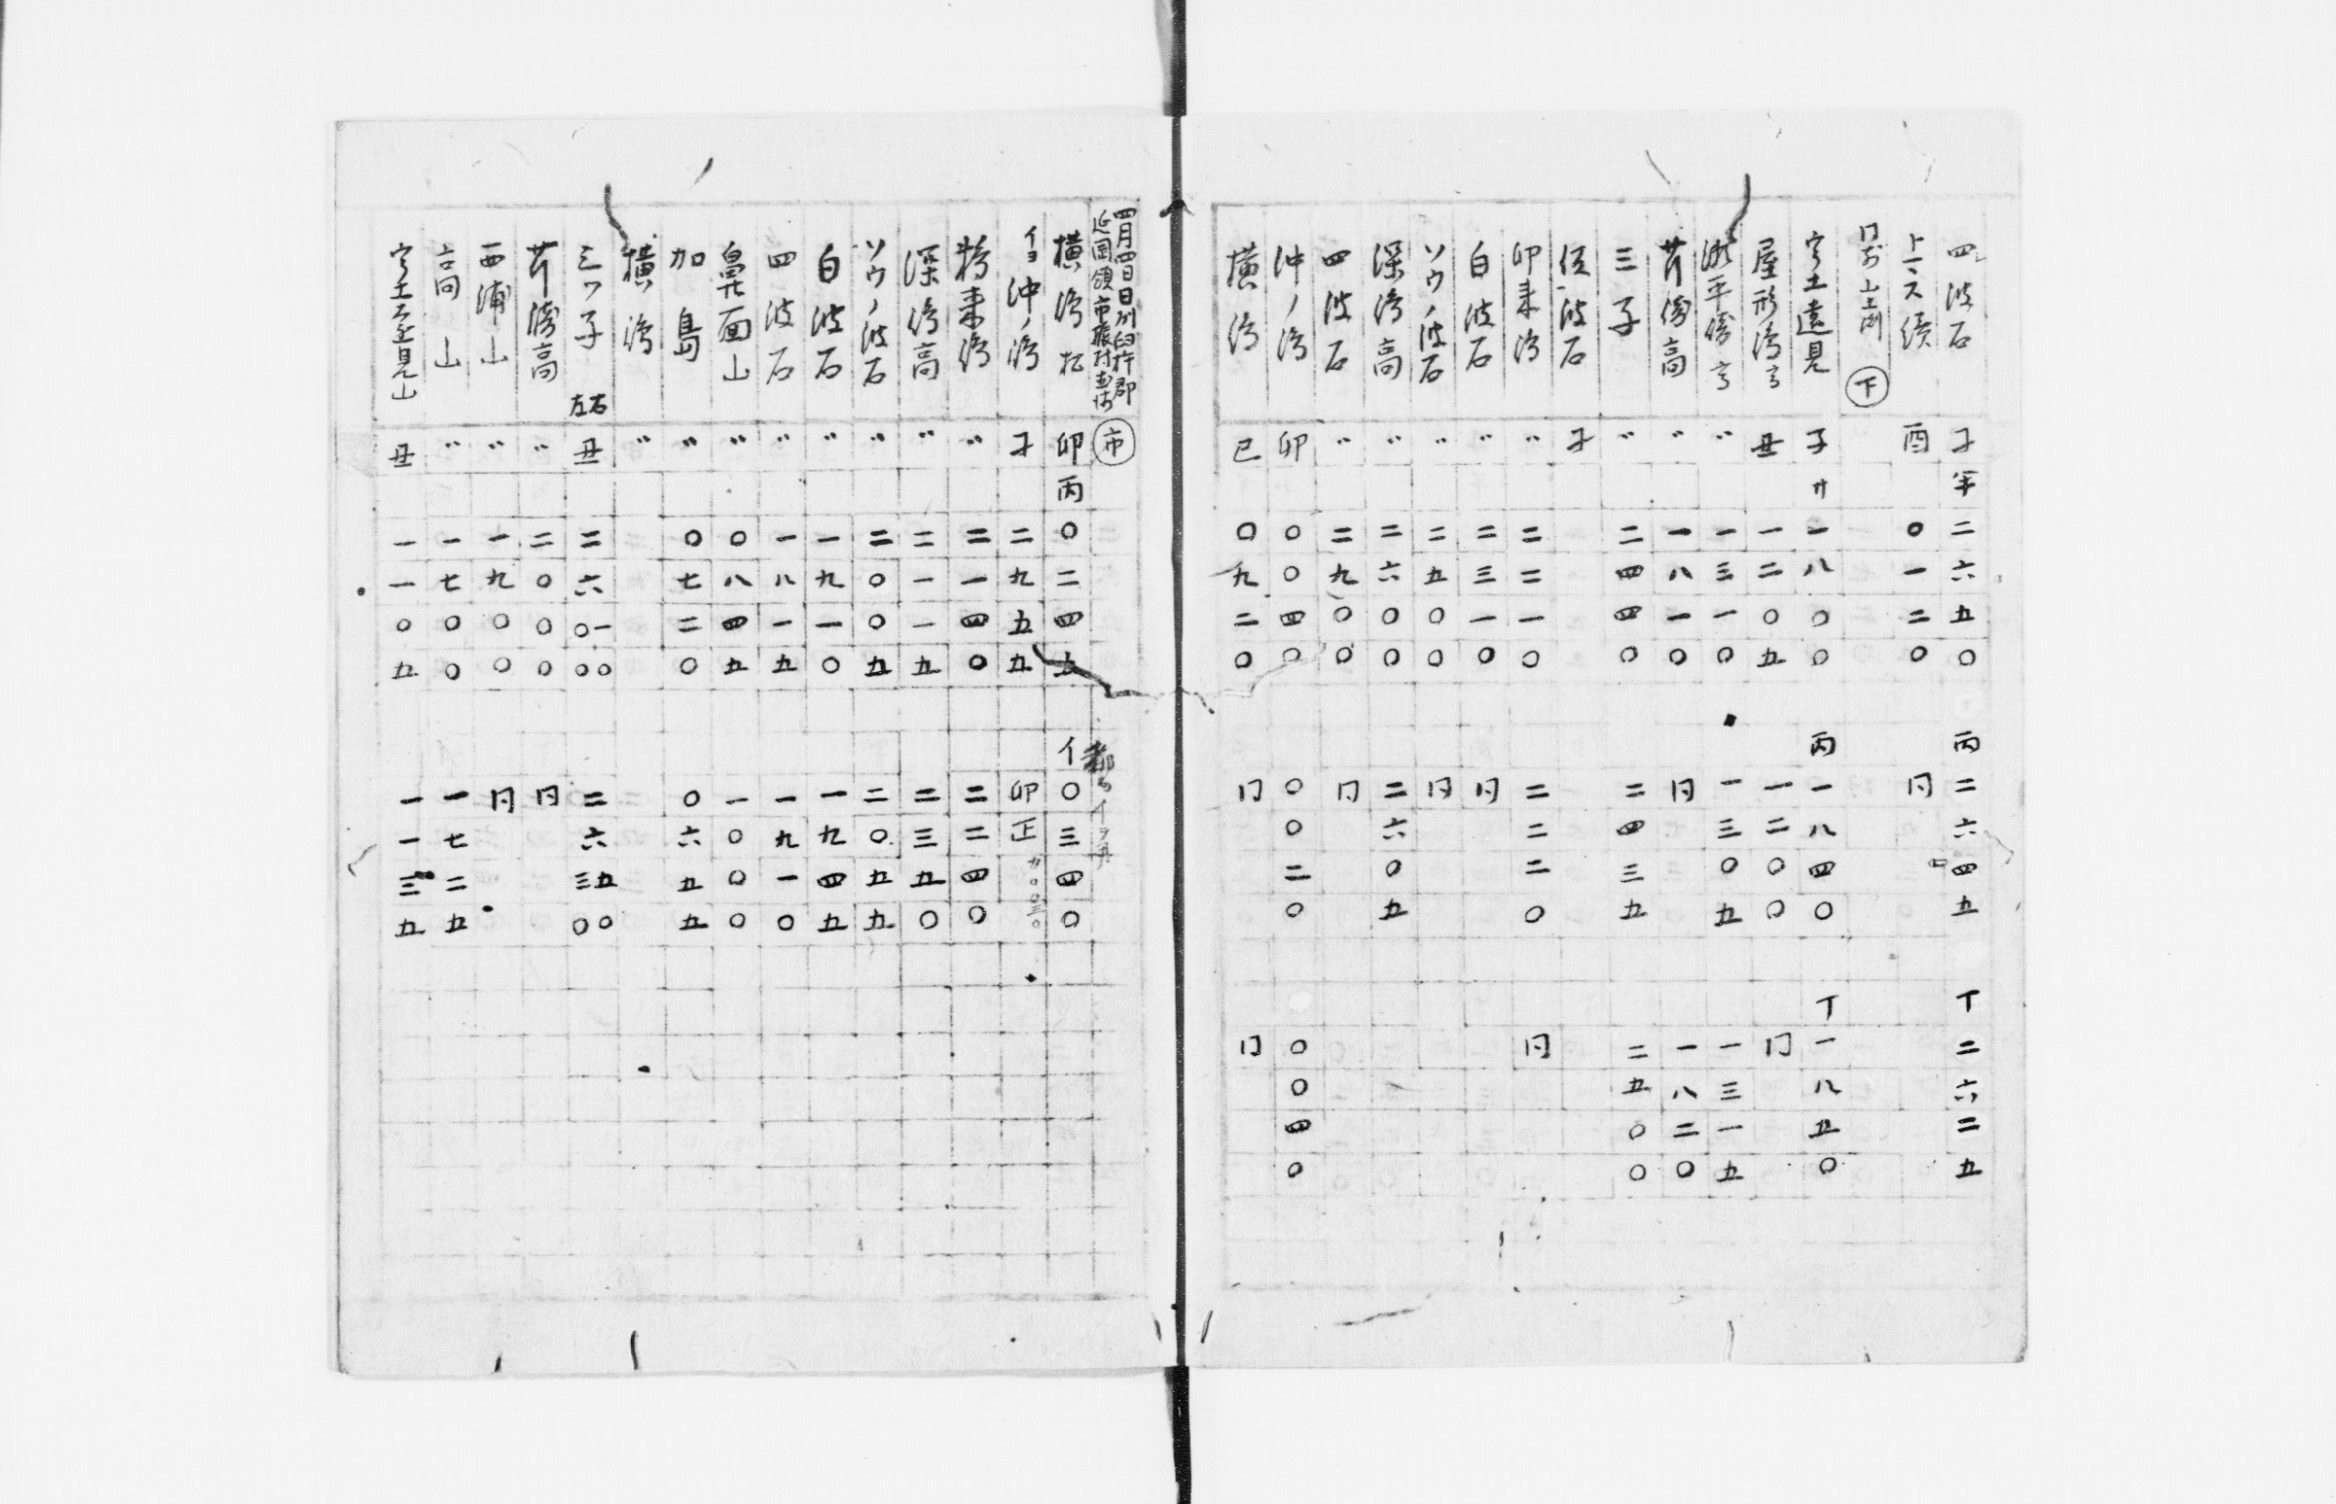 四波石 子 半 二六五〇 丙 二六四五 丁 二六二五
酉 〇一二〇 同
下
宇土遠見 子 廿 一八〇〇 丙 一八四〇 丁 一八五〇
屋形 丑 一二〇五 一二〇〇 同
〃 一三一〇 一三〇五 一三一五
高 〃 一八一〇 同 一八二〇
三子 〃 二四四〇 二四三五 二五〇〇
波石 子
卯来 〃 二二一〇 二二二〇 同
白波石 〃 二三一〇 同
ソウノ波石 〃 二五〇〇 同
深 高 〃 二六〇〇 二六〇五
四波石 〃 二九〇〇 同
沖ノ 卯 〇〇四〇 〇〇二〇 〇〇四〇
横 巳 〇九二〇 同 同
四月四日日州臼杵郡
延岡領市振村 市
横 卯 丙 〇二四五 イ 〇三四〇
イヨ沖ノ 子 二九五五 卯 正
〃 二一四〇 二二四〇
深 高 〃 二一一五 二三五〇
ソウノ波石 〃 二〇〇五 二〇五五
白波石 〃 一九一〇 一九四五
四波石 〃 一八一五 一九一〇
鼻面山 〃 〇八四五 一〇〇〇
加島 〃 〇七二〇 〇六五五
横 〃
三ツ子 左右 丑 二六〇一〇〇 二六三五〇〇
高 〃 二〇〇〇 同
西浦山 〃 一九〇〇 同
高山 〃 一七〇〇 一七二五
宇土 見山 丑 一一〇五 一一三五